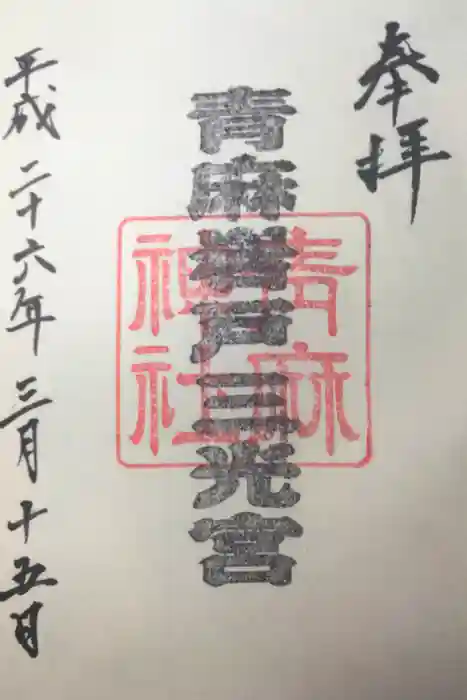 奉拝
青麻岩戸三光宮
青麻神社
平成二十六年三月十五日